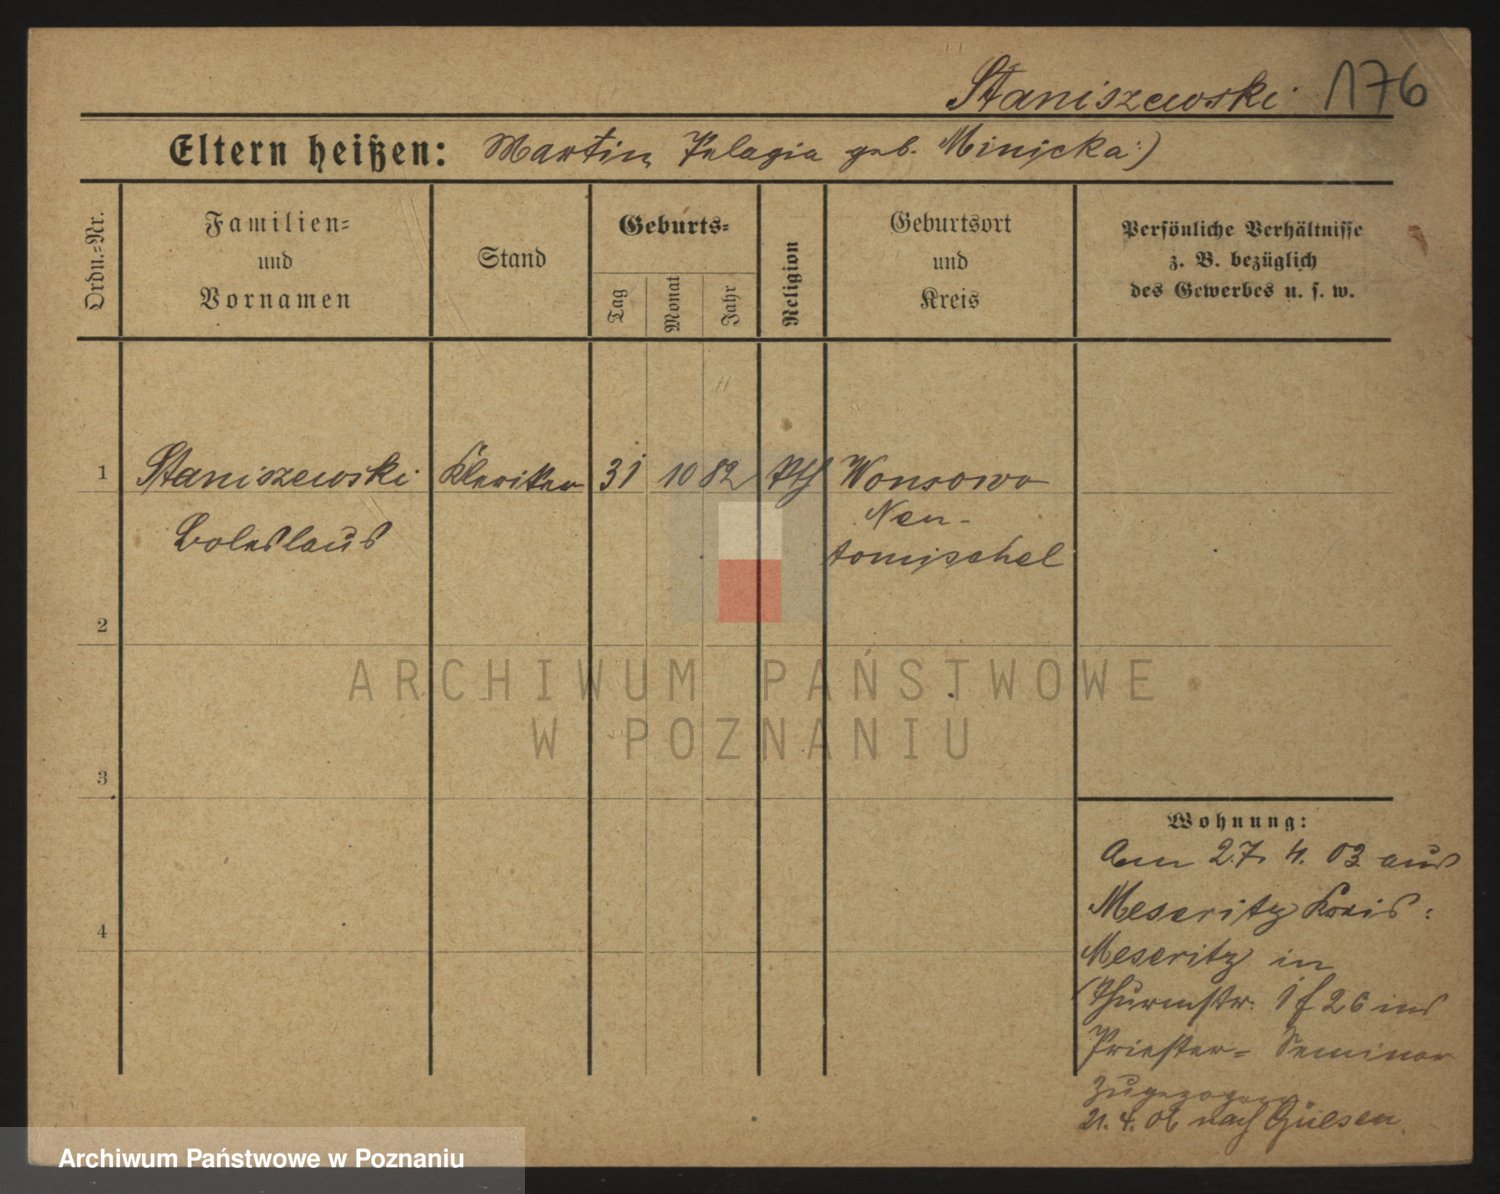 Staniszewski 176
Eltern heißen: Martin Pelagia geb. Minicka)
Ordn.=Nr.
Familien=
und
Vornamen
Stand
Geburts=
Tag
Monat
Jahr
Religion
Geburtsort
und
Kreis
Persönliche Verhältnisse
z. B. bezüglich
des Gewerbes u. s. w.
1 Staniszewski Kleriker 31 10 82 kth Wonsowo
Boleslaus Neu-
tomischel
2
3
4
ARCHIWUM PAŃSTWOWE
W POZNANIU
Wohnung:
Am 27. 4. 03 aus
Meseritz Kreis:
Meseritz in
Thurmstr. 26 ins
Priester= Seminar
zugezogen
21. 4. 06 nach
Archiwum Państwowe w Poznaniu